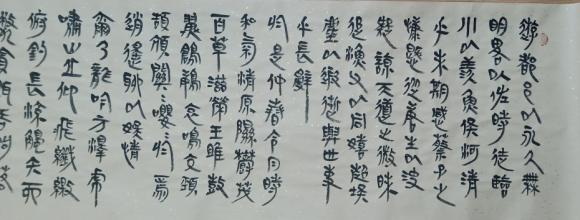 游都邑以永久無
明略以佐時徒臨
川以羨魚俟河清
乎未期感蔡子之
慷慨從唐生以決
疑諒天道之微昧
追漁父以同嬉超埃
塵以遐逝與世事
乎長辭
於是仲春令月時
和氣清原隰鬱茂
百草滋榮王雎鼓
翼鶬鶊哀鳴交頸
頡頏關關嚶嚶於焉
逍遙聊以娛情
爾乃龍吟方澤虎
嘯山丘仰飛纖繳
俯釣長流觸矢而
斃貪餌